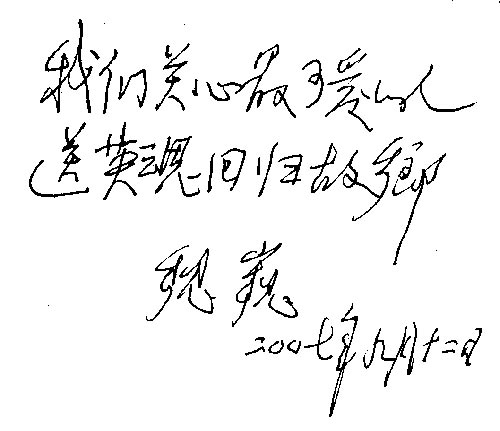 我们关心最可爱的人
送英魂回归故乡
魏巍
2007年九月十二日